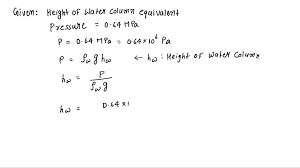 Given: Height of Water Column equivalent
Pressure = 0.64 MPa
P = 0.64 MPa = 0.64×10⁶ Pa
P = ρw g hw ← hw : Height of Water Column
hw = P / ρw g
hw = 0.64×1